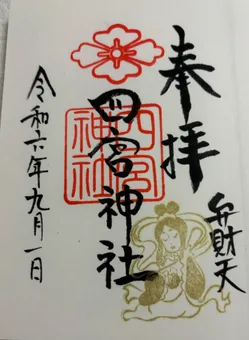 奉拝
弁財天
四宮神社
四宮神社
令和六年九月一日